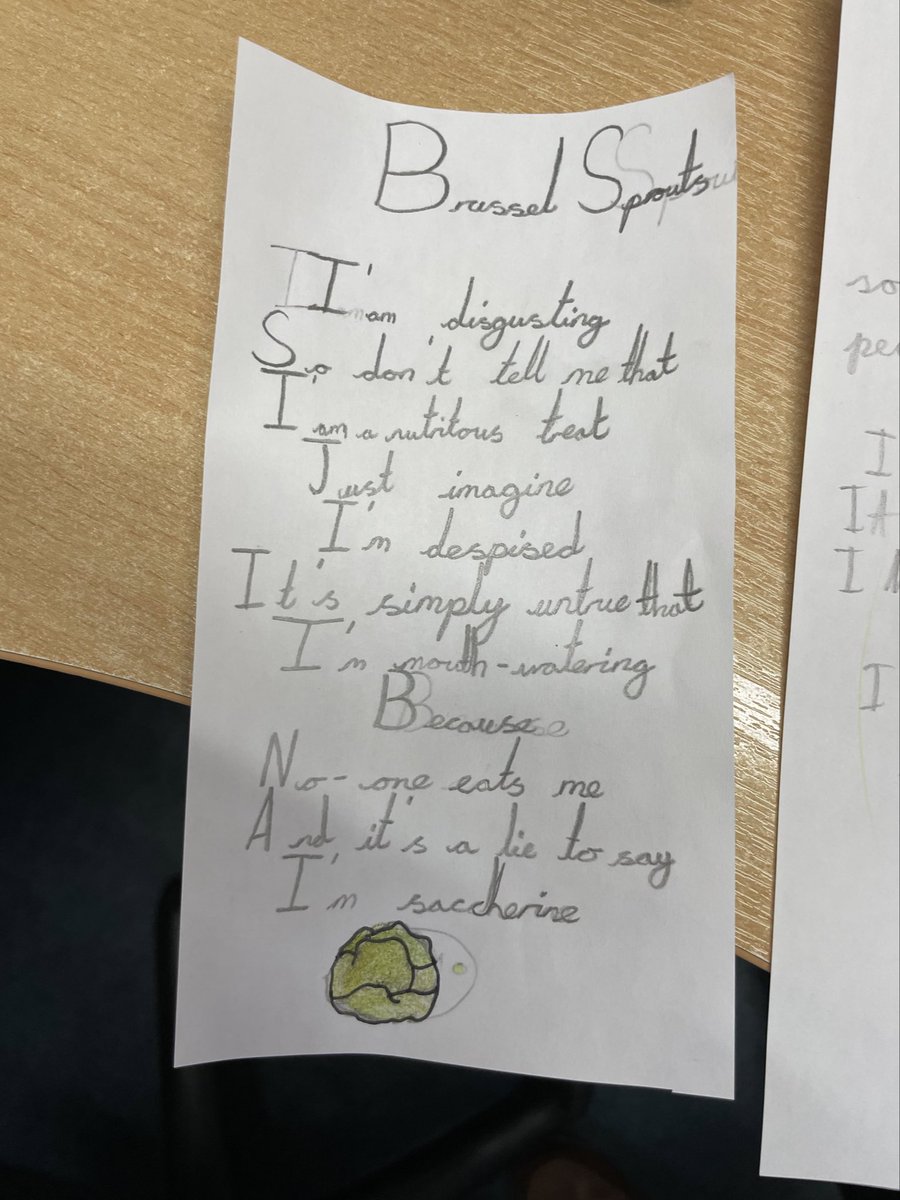 Brussel Sprouts
I'am disgusting
So don't tell me that
I am a nutritous treat
Just imagine
I'm despised
It's simply untrue that
I'm mouth-watering
Because
No-one eats me
And it's a lie to say
I'm saccherine
so
I
I
I